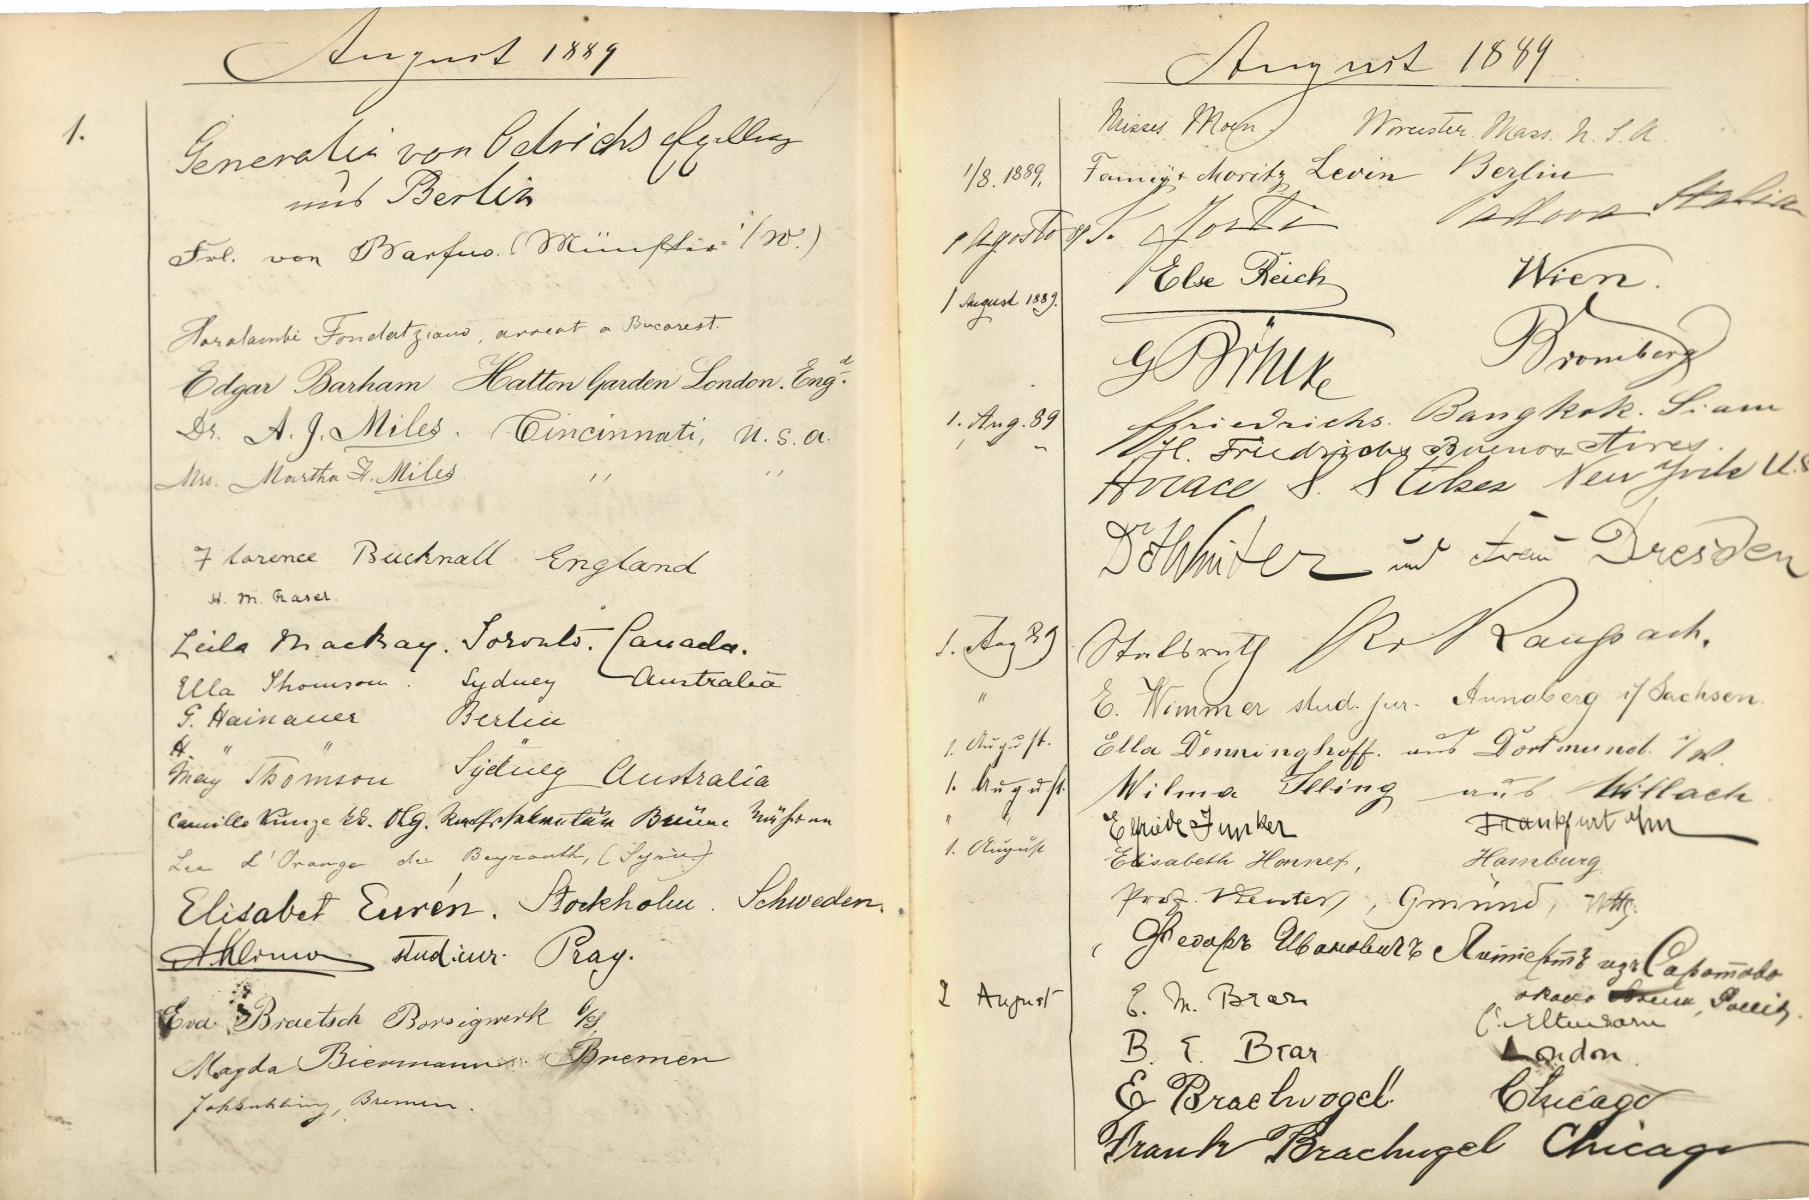 August 1889
1.
Generalin von Oelrichs
aus Berlin
Frl. von Barfus. (Münster i/W.)
Haralambi Fondatziano, avocat a Bucarest.
Edgar Barham Hatton Garden London. Engd.
Dr. A. J. Miles. Cincinnati, U.S.A.
Mrs. Martha F. Miles " "
Florence Bucknall England
H. M. Fraser.
Leila Mackay. Toronto. Canada.
Ella Thomson. Sydney Australia
G. Hainauer Berlin
H. " "
May Thomson Sydney Australia
Camillo Kunze Brünn Mähren
Leo L'Orange de Beyrouth, (Syrie)
Elisabet Eurén. Stockholm. Schweden.
stud. iur. Prag.
Eva Braetsch Borsigwerk O/S.
Magda Biermann Bremen
Bremen.
August 1889
Misses Moen Worcester. Mass. U.S.A.
1/8. 1889. Fanny & Moritz Levin Berlin
1 Agosto 89 Padova Italia
1 August 1889. Else Reich Wien.
G Böhnke Bromberg
1. Aug. 89 Friedrichs. Bangkok. Siam
" " H. Friedrichs Buenos Aires.
Horace S. Stokes New York U.S
Dr und Frau Dresden
1. Aug 89 Stralsruth Raupach.
" E. Wimmer stud. jur. Annaberg i/Sachsen.
1. August. Ella Denninghoff. aus Dortmund. i/W.
1. August. Wilma Illing aus Villach
" " Elfriede Junker Frankfurt a/m
1. August Elisabeth Honnef, Hamburg
Prof. Gmünd, Wttg.
Федоръ Ивановичъ изъ Саратова
около Россія.
2 August E. M. Brar
B. E. Brar London.
E Brachvogel Chicago
Frank Brachvogel Chicago